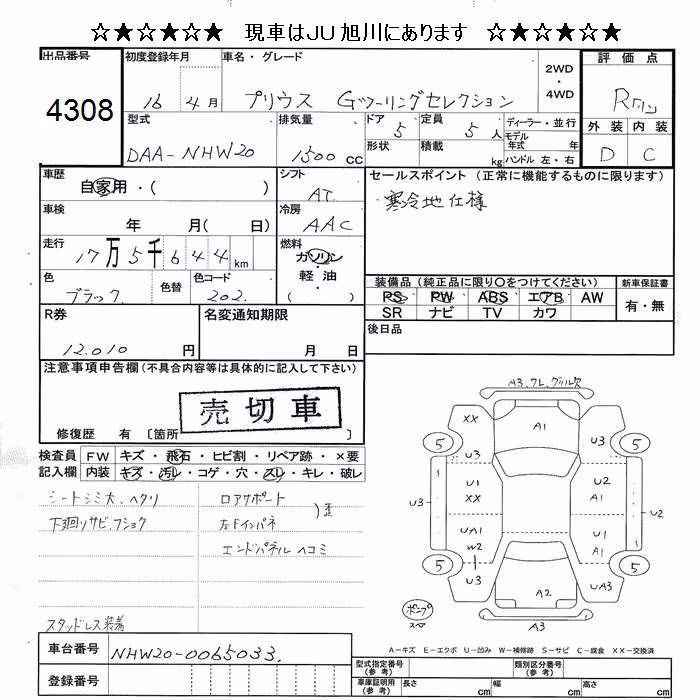 ☆★☆★☆★ 現車はJU旭川にあります ☆★☆★☆★
出品番号 初度登録年月 車名・グレード 2WD・4WD 評価点
4308 16年4月 プリウス Gツーリングセレクション
型式 排気量 ドア 定員 ディーラー・並行 外装 内装
DAA-NHW20 1500cc 5 5人 モデル年式 年 D C
形状 積載 kg ハンドル 左・右
車歴 シフト セールスポイント (正常に機能するものに限ります)
自家用・( ) AT 寒冷地仕様
車検 冷房
年 月( 日) AAC
走行 燃料
17万5千644km ガソリン・軽油
色 色替 色コード ( )
ブラック 202
装備品(純正品に限り○をつけてください) 新車保証書
PS PW ABS エアB AW 有・無
SR ナビ TV カワ
R券 名変通知期限 後日品
12,010円 月 日
注意事項申告欄(不具合内容等は具体的に記入して下さい)
売切車
修復歴 有 〔箇所
検査員記入欄 FW キズ・飛石・ヒビ割・リペア跡・×要
内装 キズ・汚れ・コゲ・穴・スレ・キレ・破レ
シートシミ大、ヘタリ ロアサポート
下廻りサビ、フショク 左Fインパネ )歪
エンドパネルヘコミ
スタッドレス装着
A3、ワレ、グリル欠
XX A1
5 U3 U3 5
U1 U2
XX A1
U3 U2
UA1 U1
W2 A1
5 U3 A2 UA3 5
ポンプ
スペア A3
A-キズ E-エクボ U-凹み W-補修跡 S-サビ C-腐食 XX-交換済
車台番号 NHW20-0065033
登録番号
型式指定番号(参考) 類別区分番号(参考)
車庫証明用(参考) 長さ cm 幅 cm 高さ cm